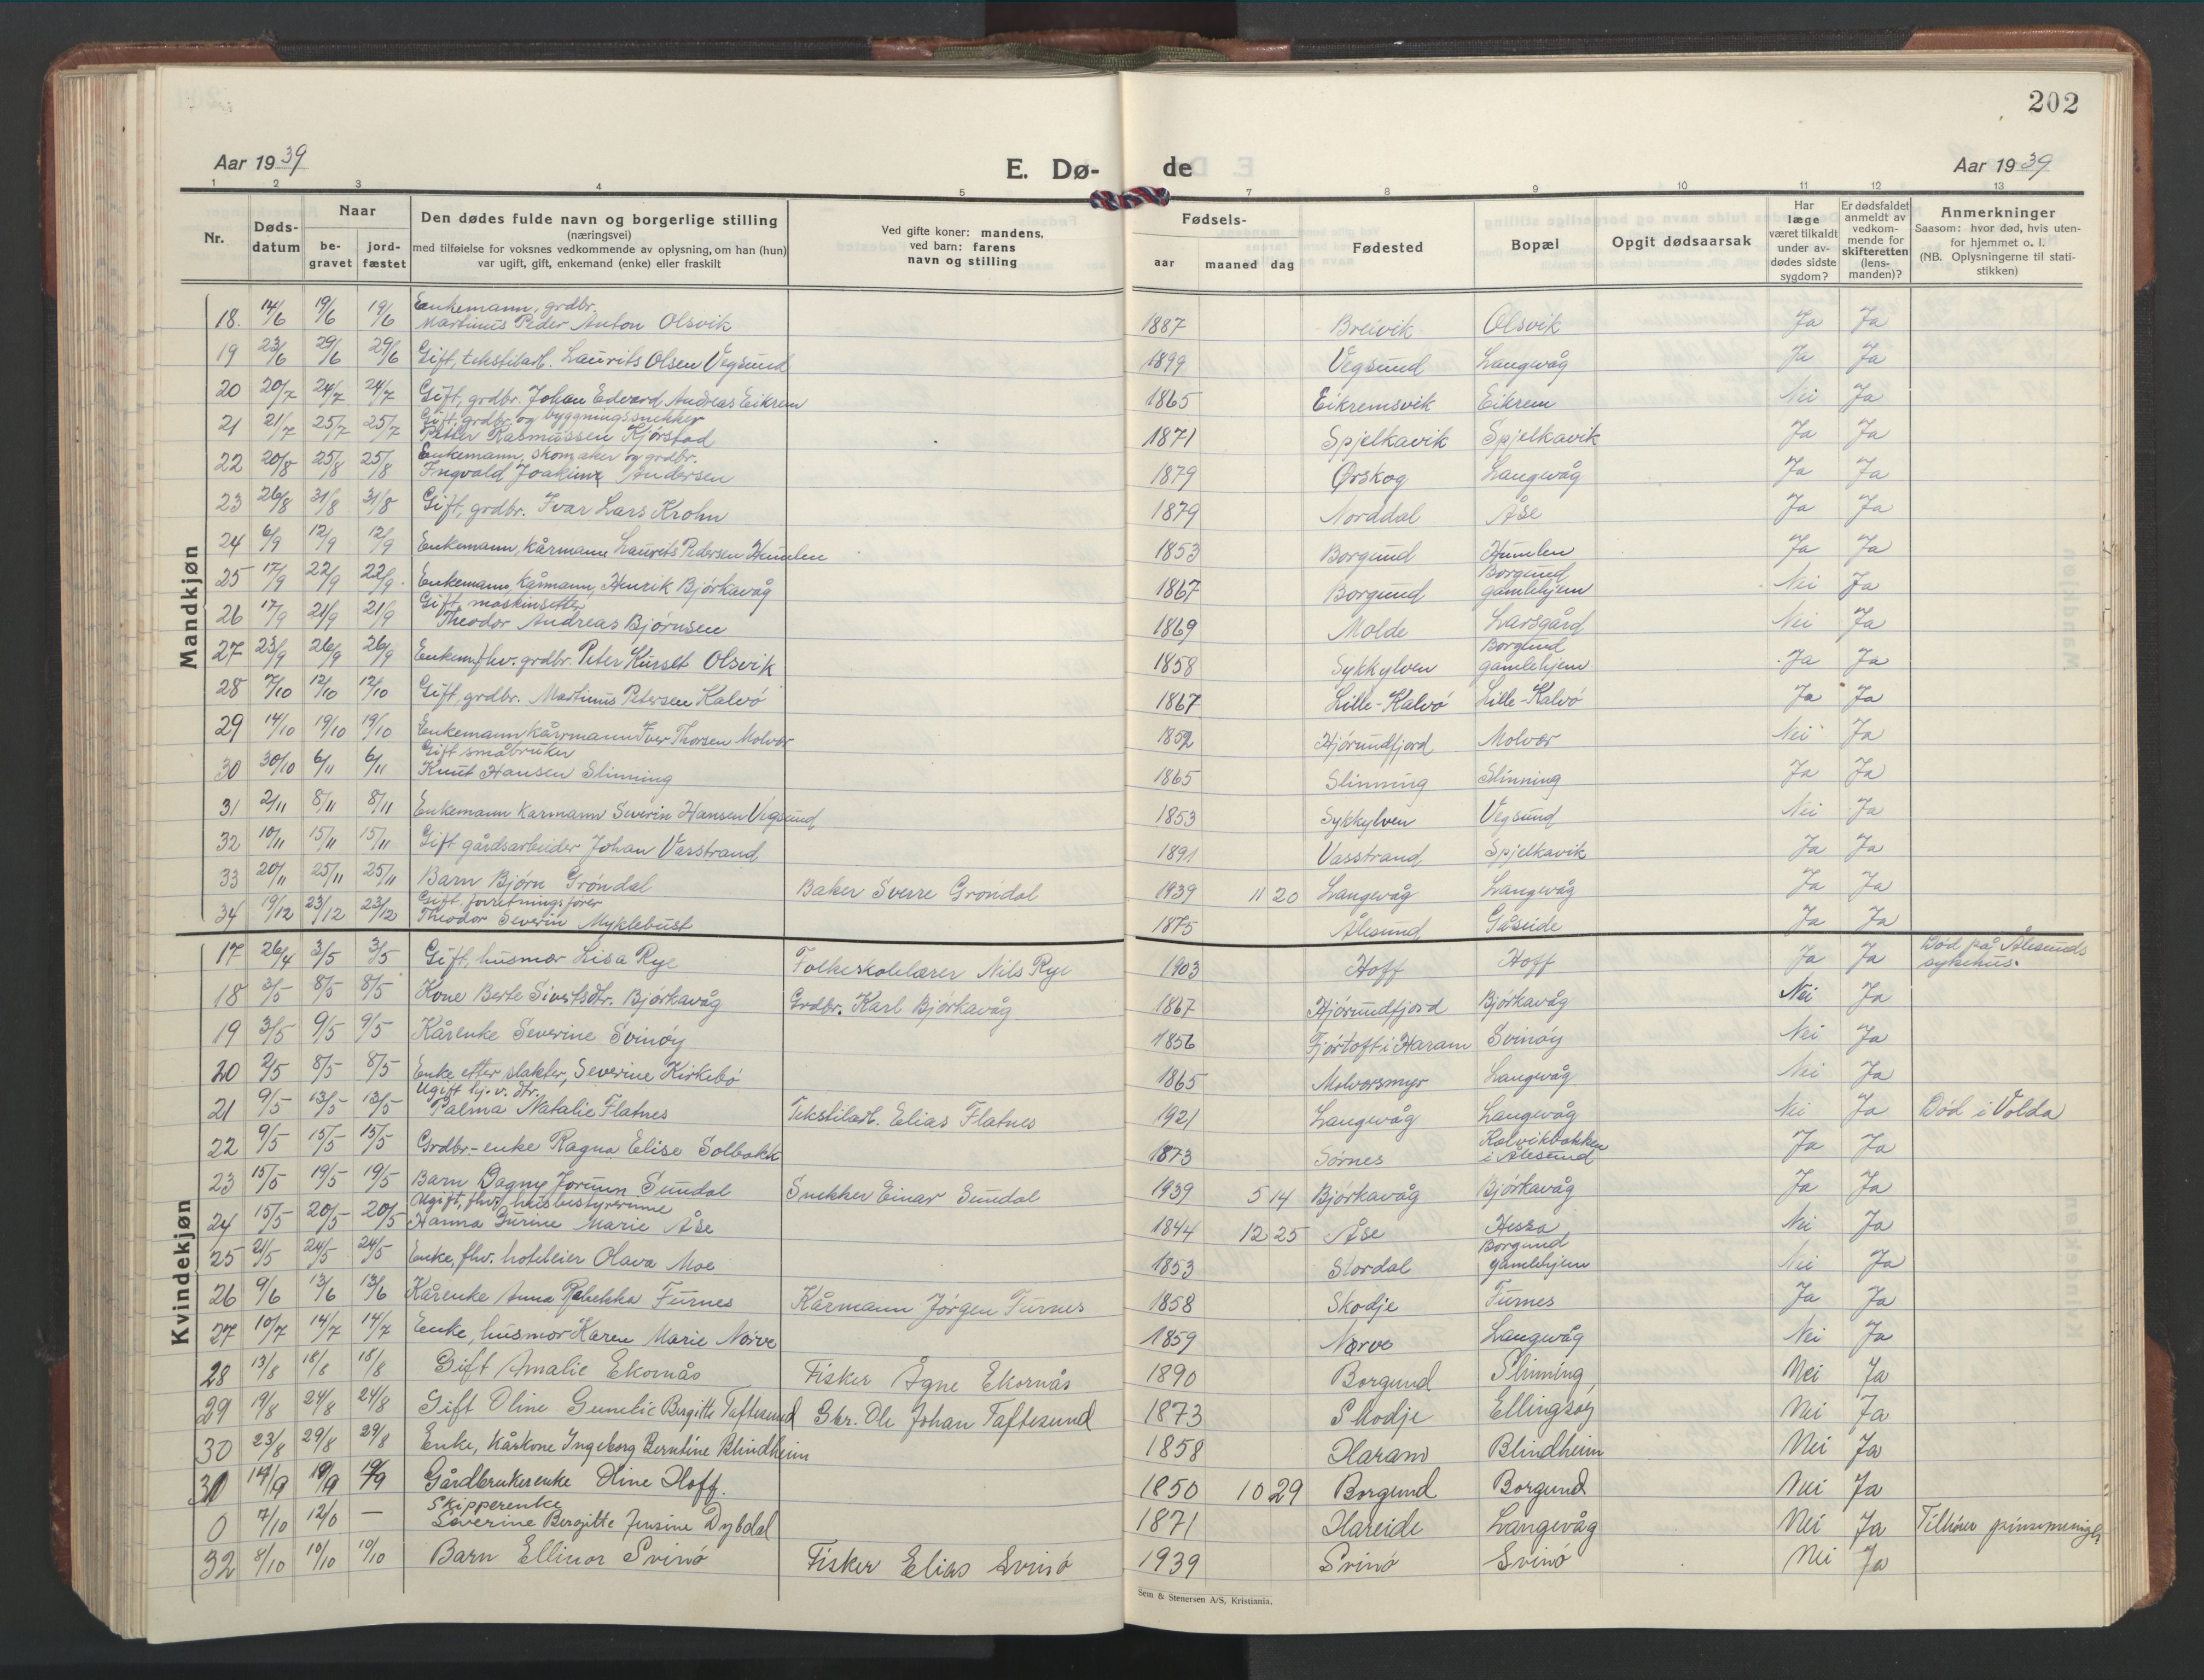 202
Aar 1939 E. Dø- de Aar 1939
1 2 3 4 5 7 8 9 10 11 12 13
Nr. Døds-datum Naar be-gravet jord-fæstet Den dødes fulde navn og borgerlige stilling (næringsvei) med tilføielse for voksnes vedkommende av oplysning, om han (hun) var ugift, gift, enkemand (enke) eller fraskilt Ved gifte koner: mandens, ved barn: farens navn og stilling Fødsels- aar maaned dag Fødested Bopæl Opgit dødsaarsak Har læge været tilkaldt under av-dødes sidste sygdom? Er dødsfaldet anmeldt av vedkom-mende for skifteretten (lens-manden)? Anmerkninger Saasom: hvor død, hvis uten-for hjemmet o. l. (NB. Oplysningerne til stati-stikken)
Mandkjøn
18. 14/6 19/6 19/6 Enkemann, grdbr. Martinus Peder Anton Olsvik 1887 Breivik Olsvik Ja Ja
19 23/6 29/6 29/6 Gift, tekstilarb. Laurits Olsen Vegsund 1899 Vegsund Langevåg Ja Ja
20 20/7 24/7 24/7 Gift, grdbr. Johan Edvard Andreas Eikrem 1865 Eikremsvik Eikrem Nei Ja
21 21/7 25/7 25/7 Gift, grdbr. og bygningssnekker Petter Rasmussen Kjørstad 1871 Spjelkavik Spjelkavik Ja Ja
22 20/8 25/8 25/8 Enkemann, skomaker og grdbr. Ingvald Joakim Andersen 1879 Ørskog Langevåg Ja Ja
23 26/8 31/8 31/8 Gift, grdbr. Ivar Lars Krohn 1879 Norddal Åse Ja Ja
24 6/9 12/9 12/9 Enkemann, kårmann Laurits Pedersen Humlen 1853 Borgund Humlen Ja Ja
25 17/9 22/9 22/9. Enkemann, kåmann, Henrik Bjørkavåg 1867 Borgund Borgund gamlehjem Nei Ja
26 17/9 21/9 21/9 Gift, maskinsetter Theodor Andreas Bjørnsen 1869 Molde Larsgård Nei Ja
27 23/9 26/9 26/9 Enkem. fhv. grdbr. Peter Kurset Olsvik 1858 Sykkylven Borgund gamlehjem Ja Ja
28 7/10 12/10 12/10 Gift, grdbr. Martinus Petersen Kalvø 1867 Lille-Kalvø Lille-Kalvø Ja Ja
29 14/10 19/10 19/10 Enkemann kårmann Iver Thorsen Molvær 1852 Hjørundfjord Molvær Nei Ja
30 30/10 6/11 6/11 Gift småbruker Knut Hansen Slinning 1865 Slinning Slinning Ja Ja
31 2/11 8/11 8/11 Enkemann Karmann Severin Hansen Vegsund 1853 Sykkylven Vegsund Nei Ja
32 10/11 15/11 15/11 Gift gårdsarbeider Johan Vasstrand 1891 Vasstrand Spjelkavik Ja Ja
33 20/11 25/11 25/11 Barn Bjørn Grøndal Baker Sverre Grøndal 1939 11 20 Langevåg Langevåg Ja Ja
34 19/12 23/12 23/12 Gift. forretningsfører Theodor Severin Myklebust 1875 Ålesund Gåseide Ja Ja
Kvindekjøn
17 26/4 3/5 3/5 Gift, husmor Lisa Rye Folkeskolelærer Nils Rye 1903 Hoff Hoff Ja Ja Død på Ålesunds sykehus.
18 3/5 8/5 8/5 Kone Berte Sivertsdtr. Bjørkavåg Grdbr. Karl Bjørkavåg 1867 Hjørundfjord Bjørkavåg Nei Ja
19 3/5 9/5 9/5 Kårenke Severine Svinøy 1856 Fjørtoft i Haram Svinøy Nei Ja
20 2/5 8/5 8/5 Enke etter slakter, Severine Kirkebø 1865 Molværsmyr Langevåg Nei Ja
21 9/5 13/5 13/5 Ugift hj.v. dtr. Palma Natalie Flatnes Tekstilarb. Elias Flatnes 1921 Langevåg Langevåg Nei Ja Død i Volda
22 9/5 15/5 15/5 Grdbr-enke Ragna Elise Solbakk 1873 Sørnes Kolvikbakken i Ålesund Ja Ja
23 15/5 19/5 19/5 Barn Dagny Jorunn Sundal Snekker Einar Sundal 1939 5 14 Bjørkavåg Bjørkavåg Ja Ja
24 15/5 20/5 20/5 Ugift, fhv. husbestyrerinne Hanna Gurine Marie Åse 1844 12 25 Åse Hessa Nei Ja
25 21/5 24/5 24/5 Enke, fhv. hotelleier Olava Moe 1853 Stordal Borgund gamlehjem Nei Ja
26 9/6 13/6 13/6 Kårenke Anna Rebekka Furnes Kårmann Jørgen Furnes 1858 Skodje Furnes Ja Ja
27 10/7 14/7 14/7 Enke, husmor Karen Marie Nørve 1859 Nørve Langevåg Nei Ja
28 13/8 18/8 18/8 Gift Amalie Ekornås Fisker Ågne Ekornås 1890 Borgund Slinning Nei Ja
29 19/8 24/8 24/8 Gift Oline Gunelie Bergitte Taftesund Gbr. Ole Johan Taftesund 1873 Skodje Ellingsøy Nei Ja
30 23/8 29/8 29/8 Enke, Kårkone Ingeborg Berntine Blindheim 1858 Haram Blindheim Nei Ja
31 14/9 19/9 19/9 Gårdbrukerenke Oline Hoff. 1850 10 29 Borgund Borgund Nei Ja
0 7/10 12/0 — Skipperenke Severine Bergitte Jensine Dybdal 1871 Hareide Langevåg Nei Ja Tilhører pinsemenigh.
32 8/10 10/10 10/10 Barn Ellinor Svinø Fisker Elias Svinø 1939 Svinø Svinø Nei Ja
Sem & Stenersen A/S, Kristiania.